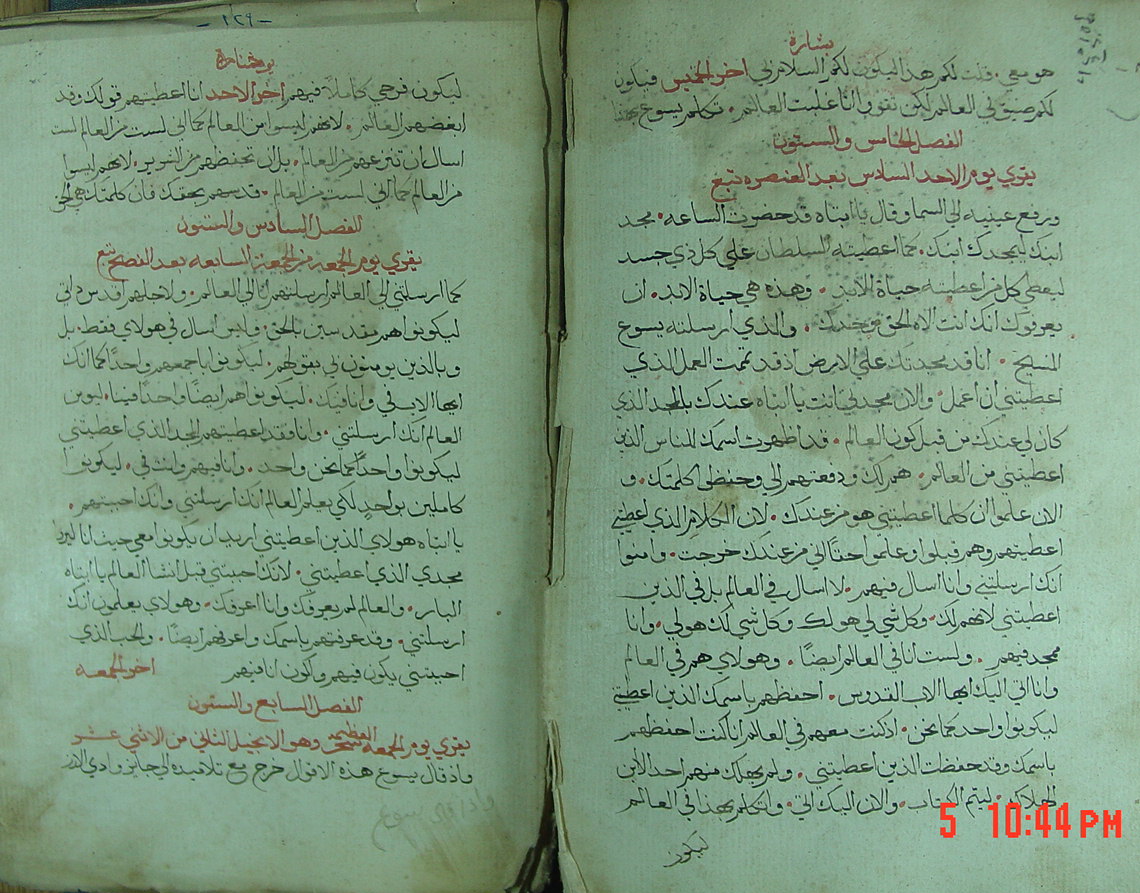 بشارة
هو معي. قلت لكم هذا ليكون لكم السلام لي اخر الخميس فيكون
لكم ضيق في العالم لكن تقووا انا غلبت العالم. تكلم يسوع بهذا
الفصل الخامس والستون
يقري يوم الاحد السادس بعد العنصره تبع
ورفع عينيه الى السما وقال يا ابتاه قد حضرت الساعه. مجد
ابنك ليمجدك ابنك. كما اعطيته السلطان على كل ذي جسد
ليعطي كل من اعطيته حياة الابد. وهذه هي حياة الابد. ان
يعرفوك انك انت الاه الحق وحدك. والذي ارسلته يسوع
المسيح. انا قد مجدتك على الارض اذ قد تممت العمل الذي
اعطيتني ان اعمل. والان مجدني انت يا ابتاه عندك بالمجد الذي
كان لي عندك من قبل كون العالم. قد اظهرت اسمك للناس الذين
اعطيتني من العالم. هم لك ودفعتهم الي وحفظوا كلمتك. و
الان علموا ان كلما اعطيتني هو من عندك. لان الكلام الذي اعطيتني
اعطيتهم وهم قبلوا وعلموا حقا اني من عندك خرجت. وامنوا
انك ارسلتني وانا اسال فيهم. لا اسال في العالم بل في الذين
اعطيتني لانهم لك. وكل شي لي هو لك وكل شي لك هو لي. وانا
ممجد فيهم. ولست انا في العالم ايضا. وهولاي هم في العالم
وانا اتي اليك ايها الاب القدوس. احفظهم باسمك الذين اعطيتني
ليكونوا واحد كما نحن. اذ كنت معهم في العالم انا كنت احفظهم
باسمك وقد حفظت الذين اعطيتني. ولم يهلك منهم احد الا ابن
الهلاك. ليتم الكتاب. والان اليك اتي. واتكلم بهذا في العالم
ليكون
- ١٢٩ -
يوحنا
ليكون فرحي كاملا فيهم اخر الاحد انا اعطيتهم قولك وقد
ابغضهم العالم. لانهم ليسوا من العالم كما اني لست من العالم لست
اسال ان تنزعهم من العالم. بل ان تحفظهم من الشرير. لانهم ليسوا
من العالم كما اني لست من العالم. قدسهم بحقك فان كلمتك هي الحق
الفصل السادس والستون
يقري يوم الجمعه من الجمعة السابعه بعد الفصح تبع
كما ارسلتني الى العالم ارسلتهم انا الى العالم. ولاجلهم اقدس ذاتي
ليكونوا هم مقدسين بالحق. وليس اسال في هولاي فقط. بل
وبالذين يومنون بي بقولهم. ليكونوا باجمعهم واحدا كما انك
ايها الاب في وانا فيك. ليكونوا هم ايضا واحدا فينا. ليومن
العالم انك ارسلتني. وانا فقد اعطيتهم المجد الذي اعطيتني
ليكونوا واحدا كما نحن واحد. وانا فيهم وانت في. ليكونوا
كاملين بواحد لكي يعلم العالم انك ارسلتني وانك احببتهم.
يا ابتاه هولاي الذين اعطيتني اريد ان يكونوا معي حيث انا ليروا
مجدي الذي اعطيتني. لانك احببتني قبل انشا العالم يا ابتاه
البار. والعالم لم يعرفك وانا اعرفك. وهولاي يعلمون انك
ارسلتني. وقد عرفتهم باسمك واعرفهم ايضا. والحب الذي
احببتني يكون فيهم واكون انا فيهم اخر الجمعه
الفصل السابع والستون
يقري يوم الجمعه العظيمه وهو الانجيل الثاني من الاثني عشر
واذ قال يسوع هذه الاقوال خرج مع تلاميذه الى جايز وادي الارز
5 10:44 PM